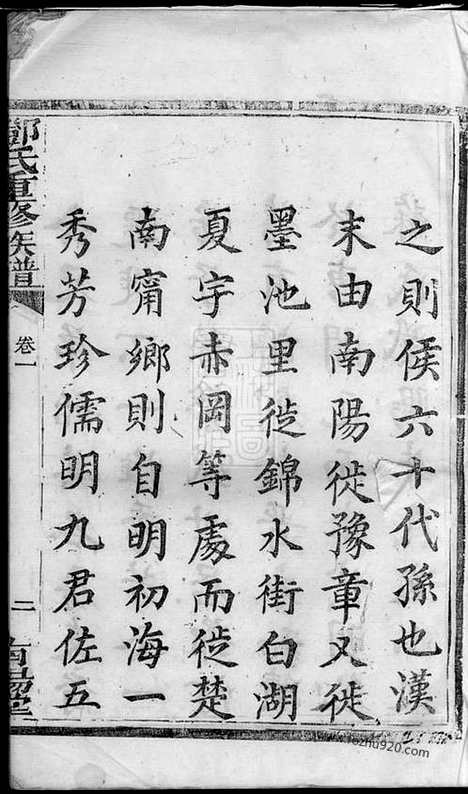 之則侯六十代孫也漢
末由南陽徙豫章又徙
墨池里徙錦水街白湖
夏宇赤岡等處而徙楚
南甯鄉則自明初海一
秀芳珍儒明九君佐五
鄧氏重修族譜
卷一
二
www.fozhu920.com